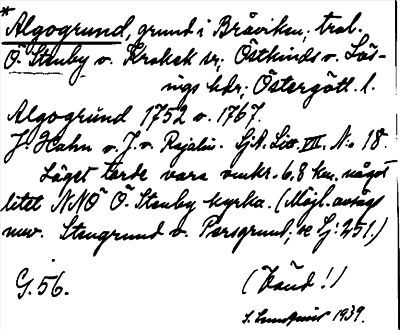 * Algogrund, grund i Bråviken; trol.
Ö. Stenby o. Krokek sr; Östkinds o. Lös-
ings hdr; Östergötl. l.
Algogrund 1752 o. 1767.
J. Hahn o. J. v. Rajalin. SjK. Litt. VII. No 18.
Läget torde vara omkr. 6.8 km. något
litet NNÖ Ö. Stenby kyrka. (Möjl. avtågs
nuv. Stengrund o. Persgrund; se Sj: 251.)
G. 56.
(Vänd!)
1939.